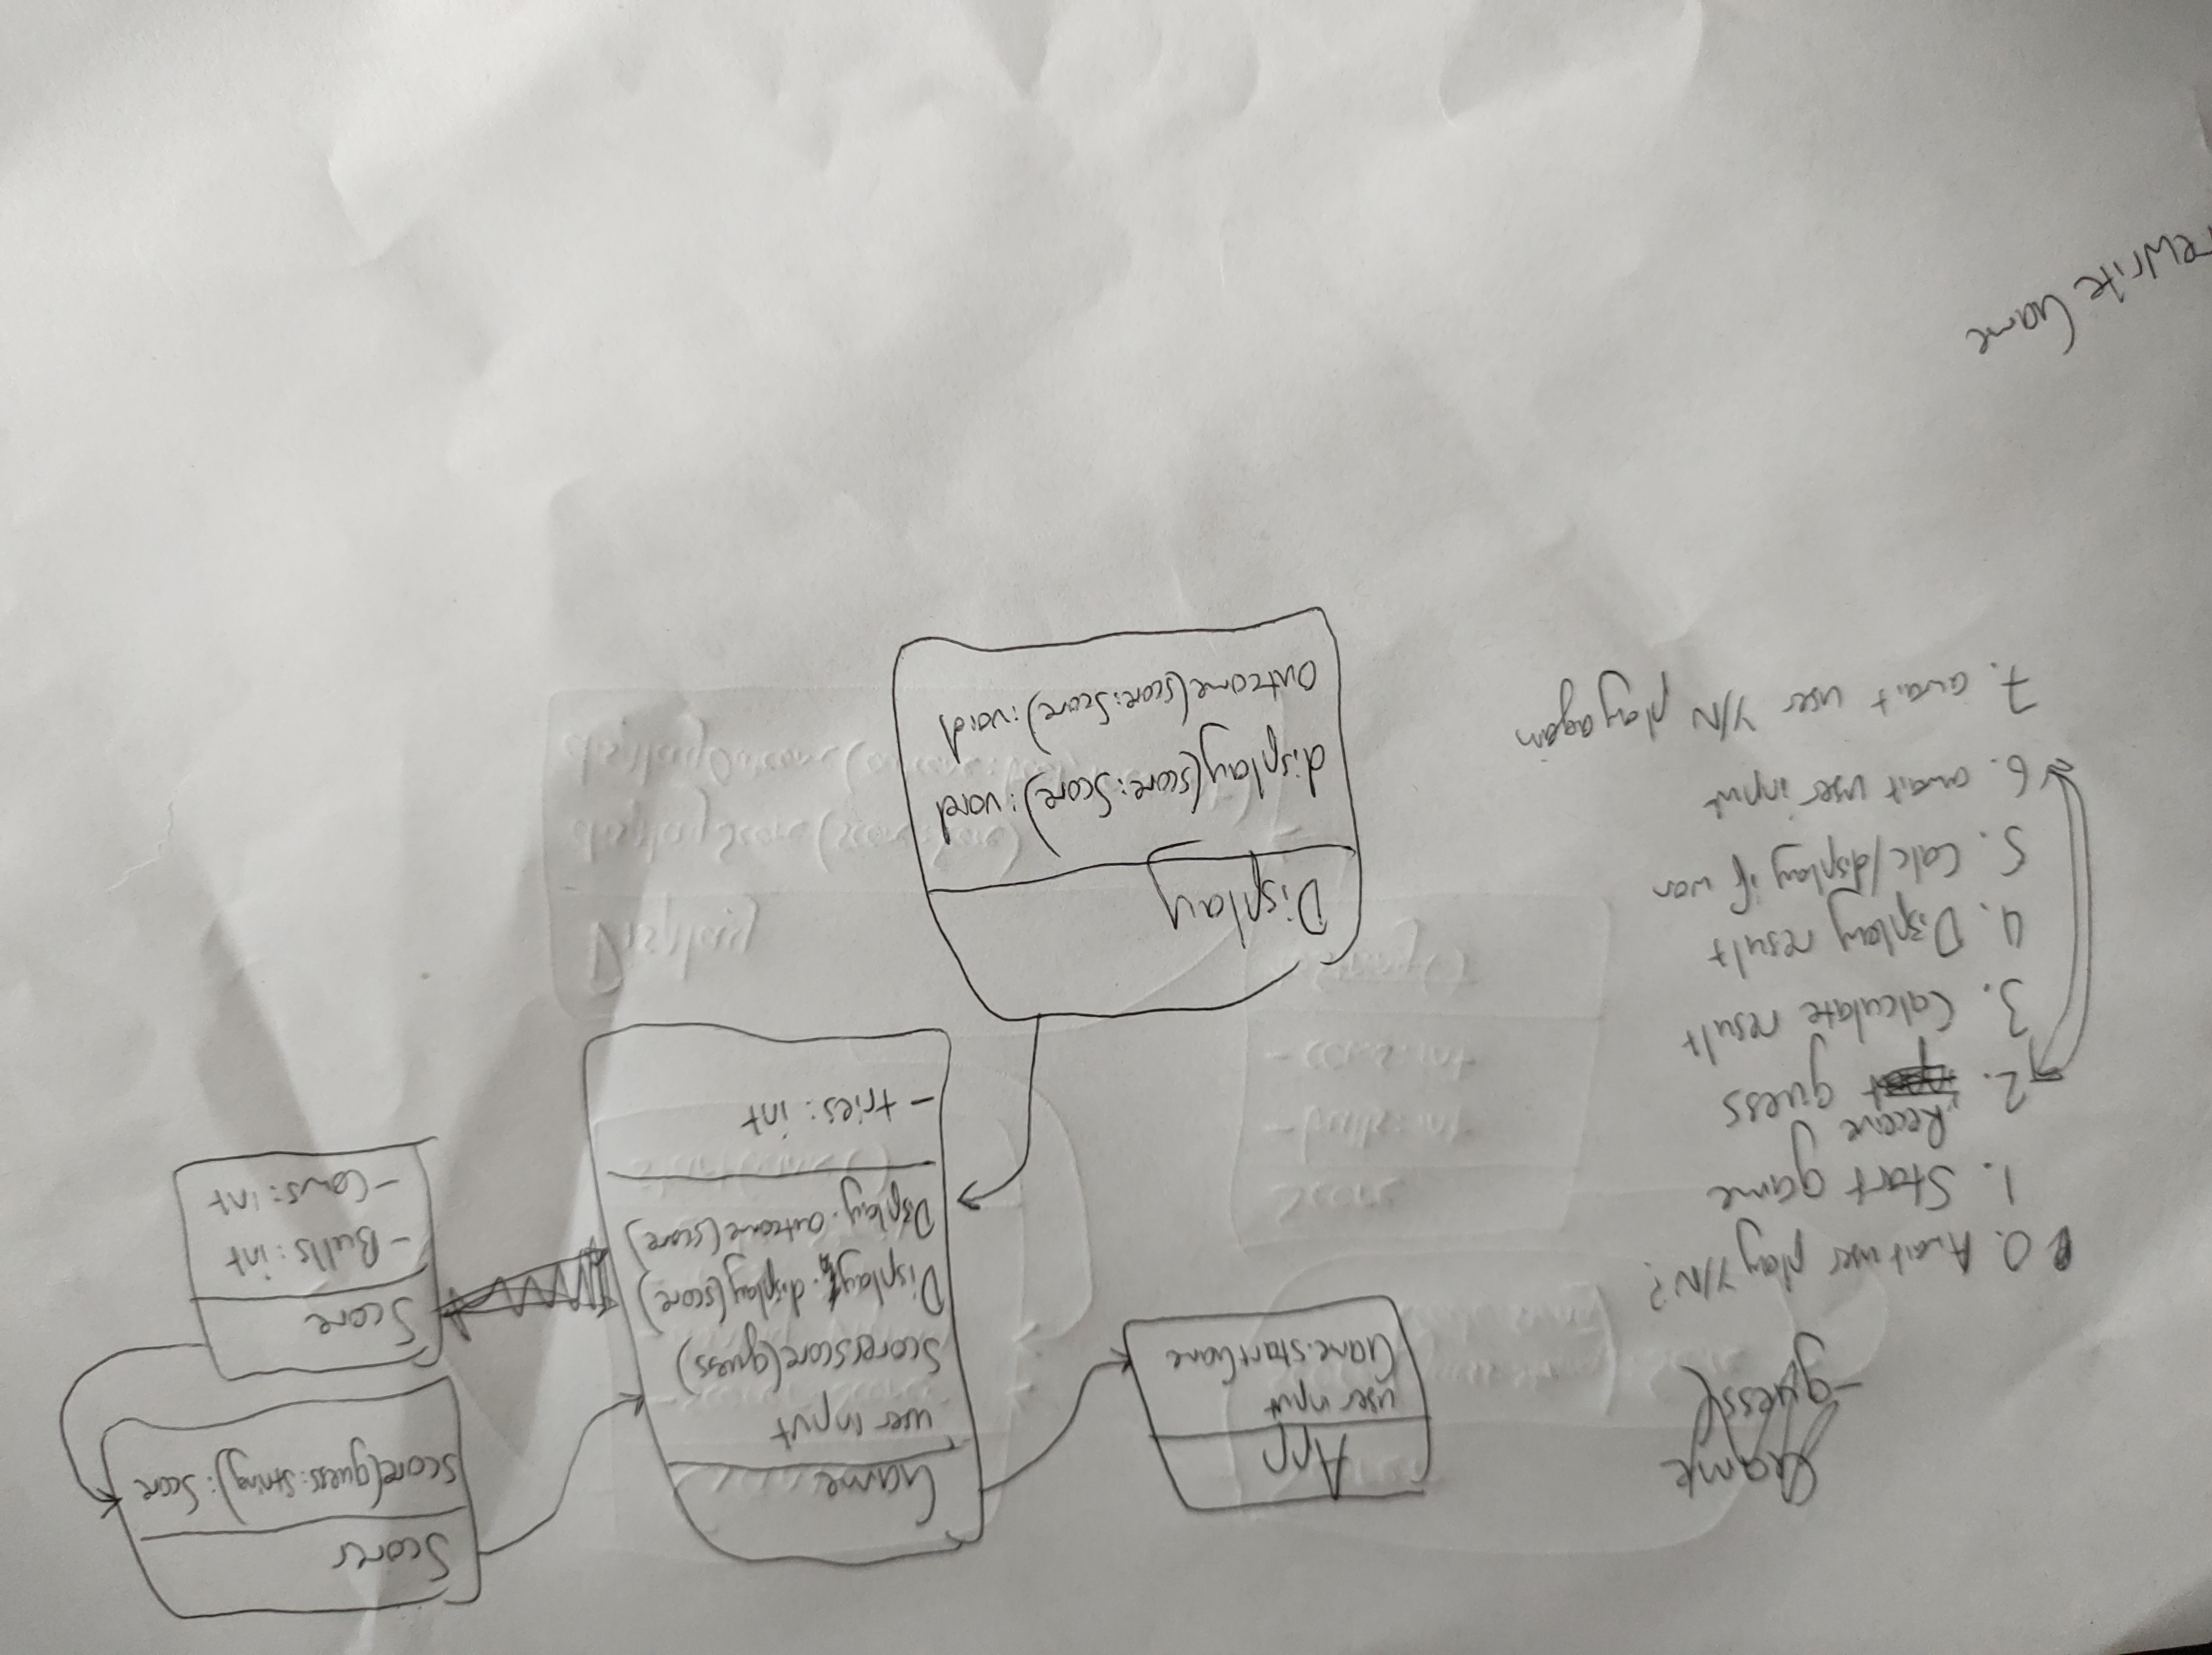 Game
-guess(
0. Await user play Y/N?
1. Start game
2. Receive guess
3. Calculate result
4. Display result
5. Calc/display if won
6. await user input
7. await user Y/N play again
rewrite Game
App
user input
Game.startGame
Game
user input
Scorerscore(guess)
Display.display(score)
Display.outcome(score)
- tries: int
Scorer
score(guess:String): Score
Score
- Bulls: int
- Cows: int
Display
display(score:Score):void
outcome(score:Score):void